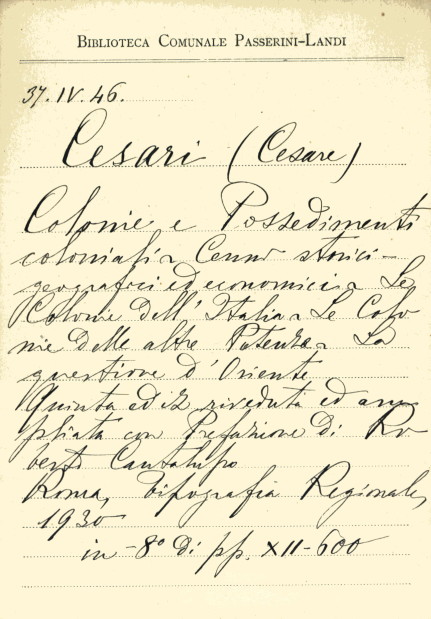 BIBLIOTECA COMUNALE PASSERINI-LANDI
37.IV.46.
Cesari (Cesare)
Colonie e Possedimenti
coloniali - Cenni storici -
geografici ed economici - Le
Colonie dell'Italia - Le Colo
nie delle altre Potenze - La
questione d'Oriente
Quinta ediz riveduta ed am
pliata con Prefazione di Ro
berto Cantalupo
Roma, Tipografia Regionale,
1930
in - 8° di pp. XII-600